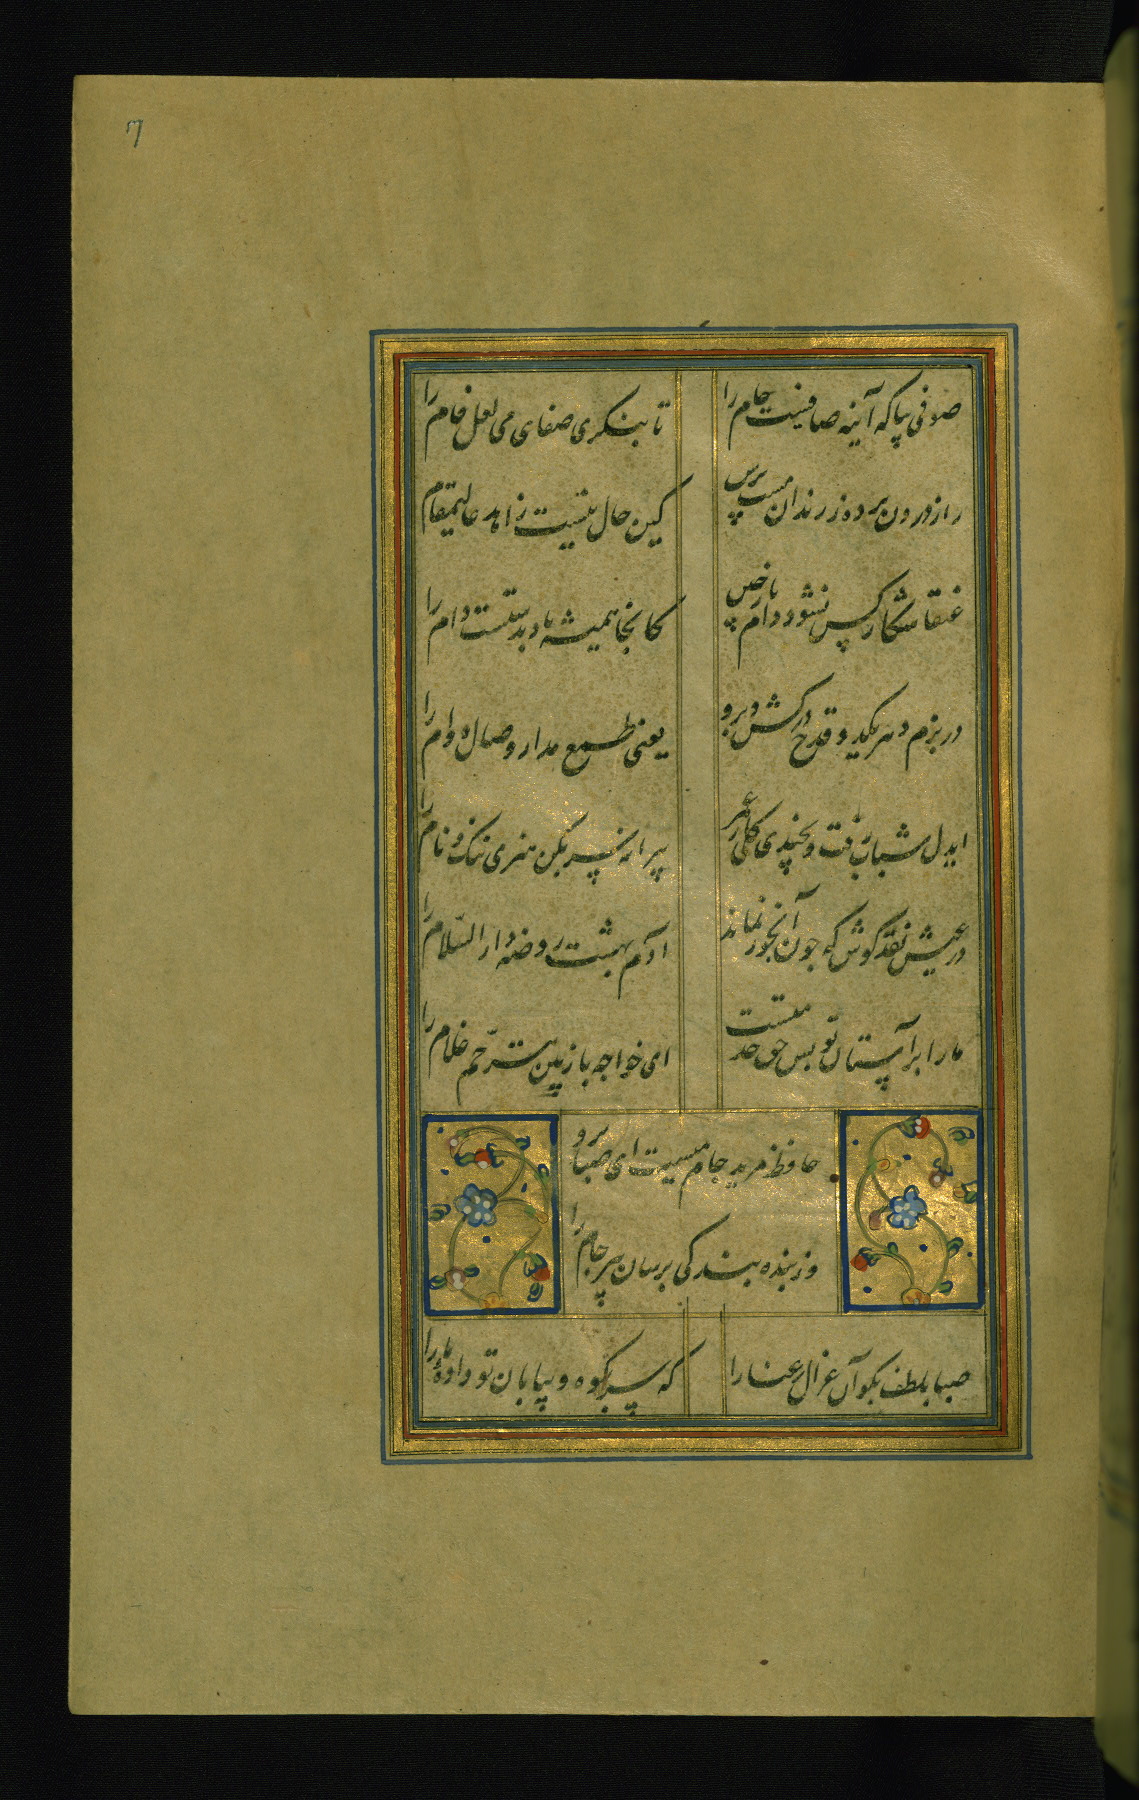 7
صوفی بیا که آینه صافیست جام را
تا بنگری صفای می لعل فام را
راز درون پرده ز رندان مست پرس
کین حال نیست زاهد عالیمقام
عنقا شکار کس نشود دام باز چین
کانجا همیشه باد بدستست دام را
در بزم دهر یکدو قدح درکش و برو
یعنی طمع مدار وصال دوام را
ایدل شباب رفت و نچیدی گلی ز عمر
پیرانه سر بکن هنری ننگ و نام را
در عیش نقد کوش که چون آبخور نماند
آدم بهشت روضه دار السّلام را
ما را بر آستان تو بس حق خدمتست
ای خواجه باز بین بترحّم غلام را
حافظ مرید جام میست ای صبا برو
وز بنده بندگی برسان پیر جام را
صبا بلطف بگو آن غزال رعنا را
که سر بکوه و بیابان تو داده ما را